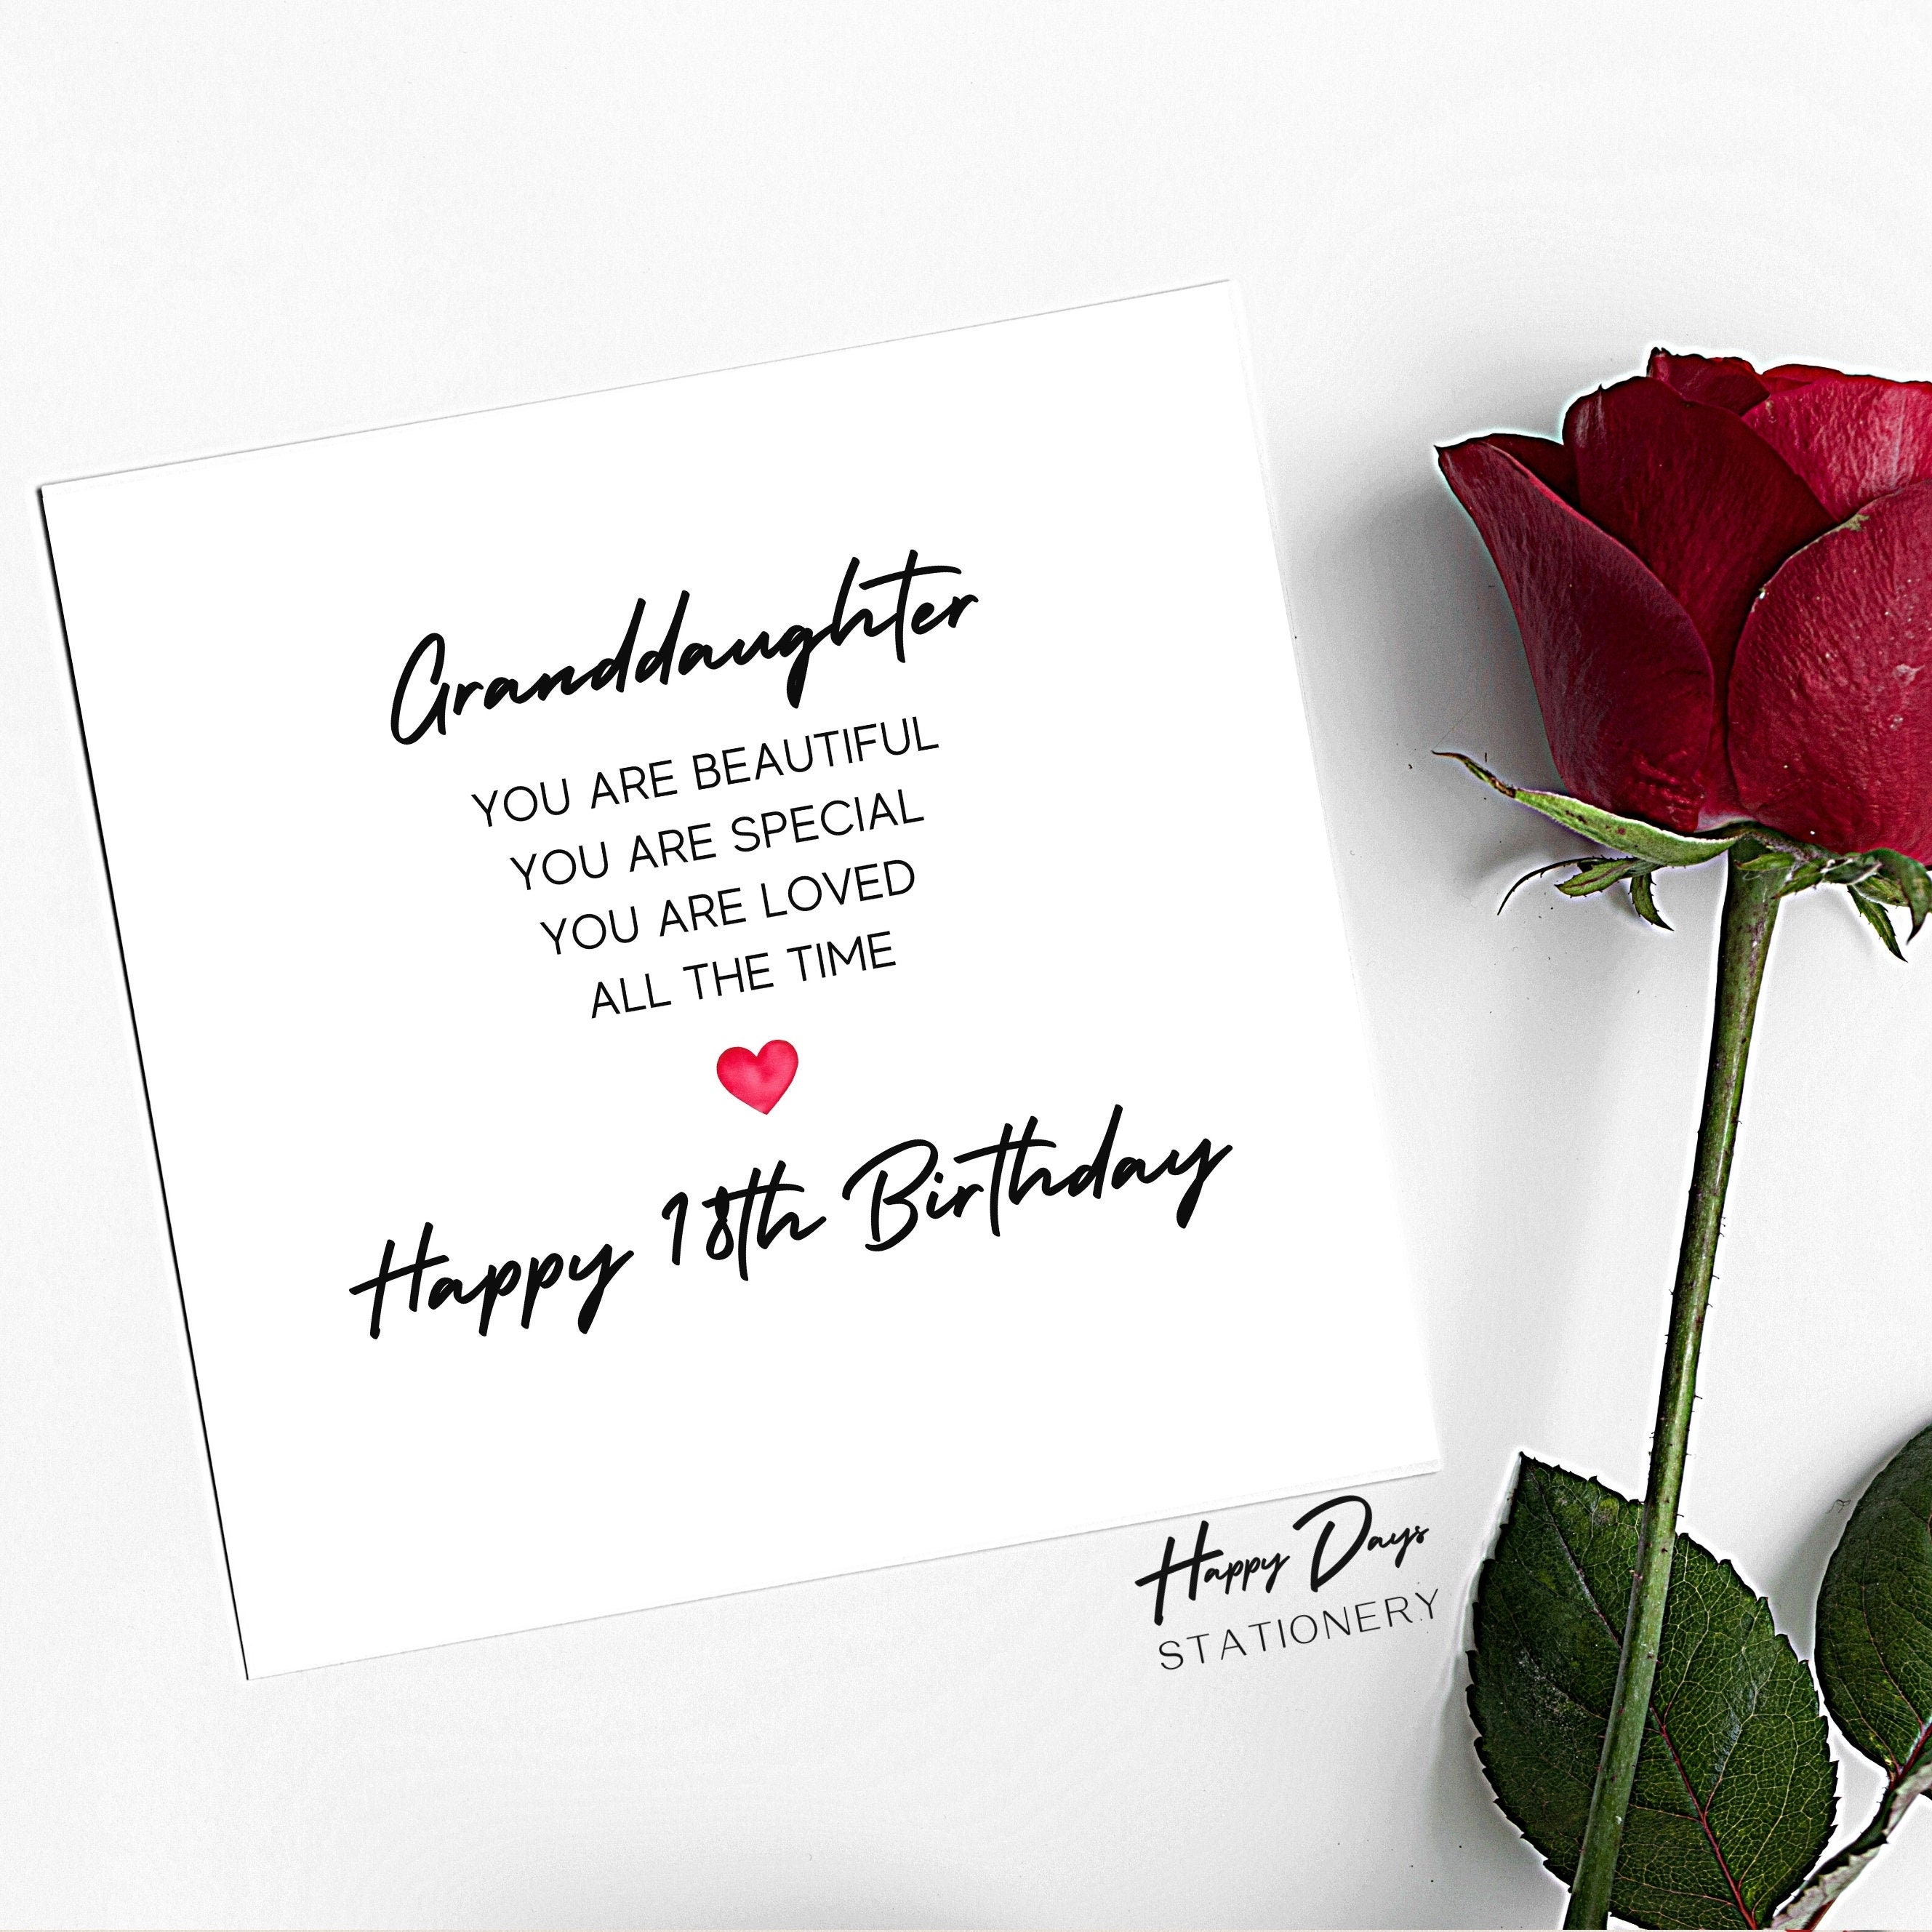 Granddaughter
YOU ARE BEAUTIFUL
YOU ARE SPECIAL
YOU ARE LOVED
ALL THE TIME
Happy 18th Birthday
Happy Days
STATIONERY